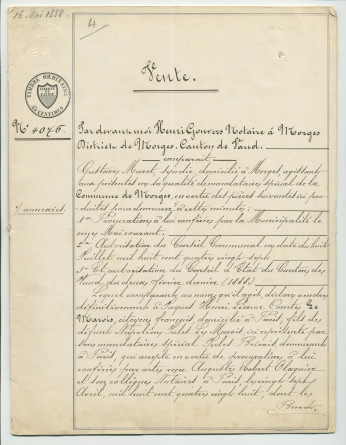 16 Mai 1888.
4
Vente.
TIMBRE ORDINAIRE
N° 4076.
Par devant moi Henri Gonvers Notaire à Morges
District de Morges, Canton de Vaud.
comparait
Gustave Muret, syndic domicilié à Morges, agissant
aux présentes en sa qualité de mandataire spécial de la
Commune de Morges, en vertu des pièces suivantes ici pro-
duites pour demeurer à cette minute:
1° Procuration à lui conférée par la Municipalité le
onze Mai courant.
2° Autorisation du Conseil Communal en date du huit
Juillet mil huit cent quatre vingt sept
3° Et autorisation du Conseil d'Etat du Canton de
Vaud, du deux février dernier (1888.)
Lequel comparant, au nom qu'il agit, déclare vendre
définitivement à Auguste Henri Comte Le
Marois, citoyen français, domicilié à Paris, fils de
défunt Napoléon Jules Le Marois ici représenté par
son mandataire spécial Jules Prévost demeurant
à Paris, qui accepte en vertu de procuration à lui
conférée par acte reçu Auguste
et son collègue Notaires à Paris, le vingt sept
Avril, mil huit cent quatre vingt huit, dont le